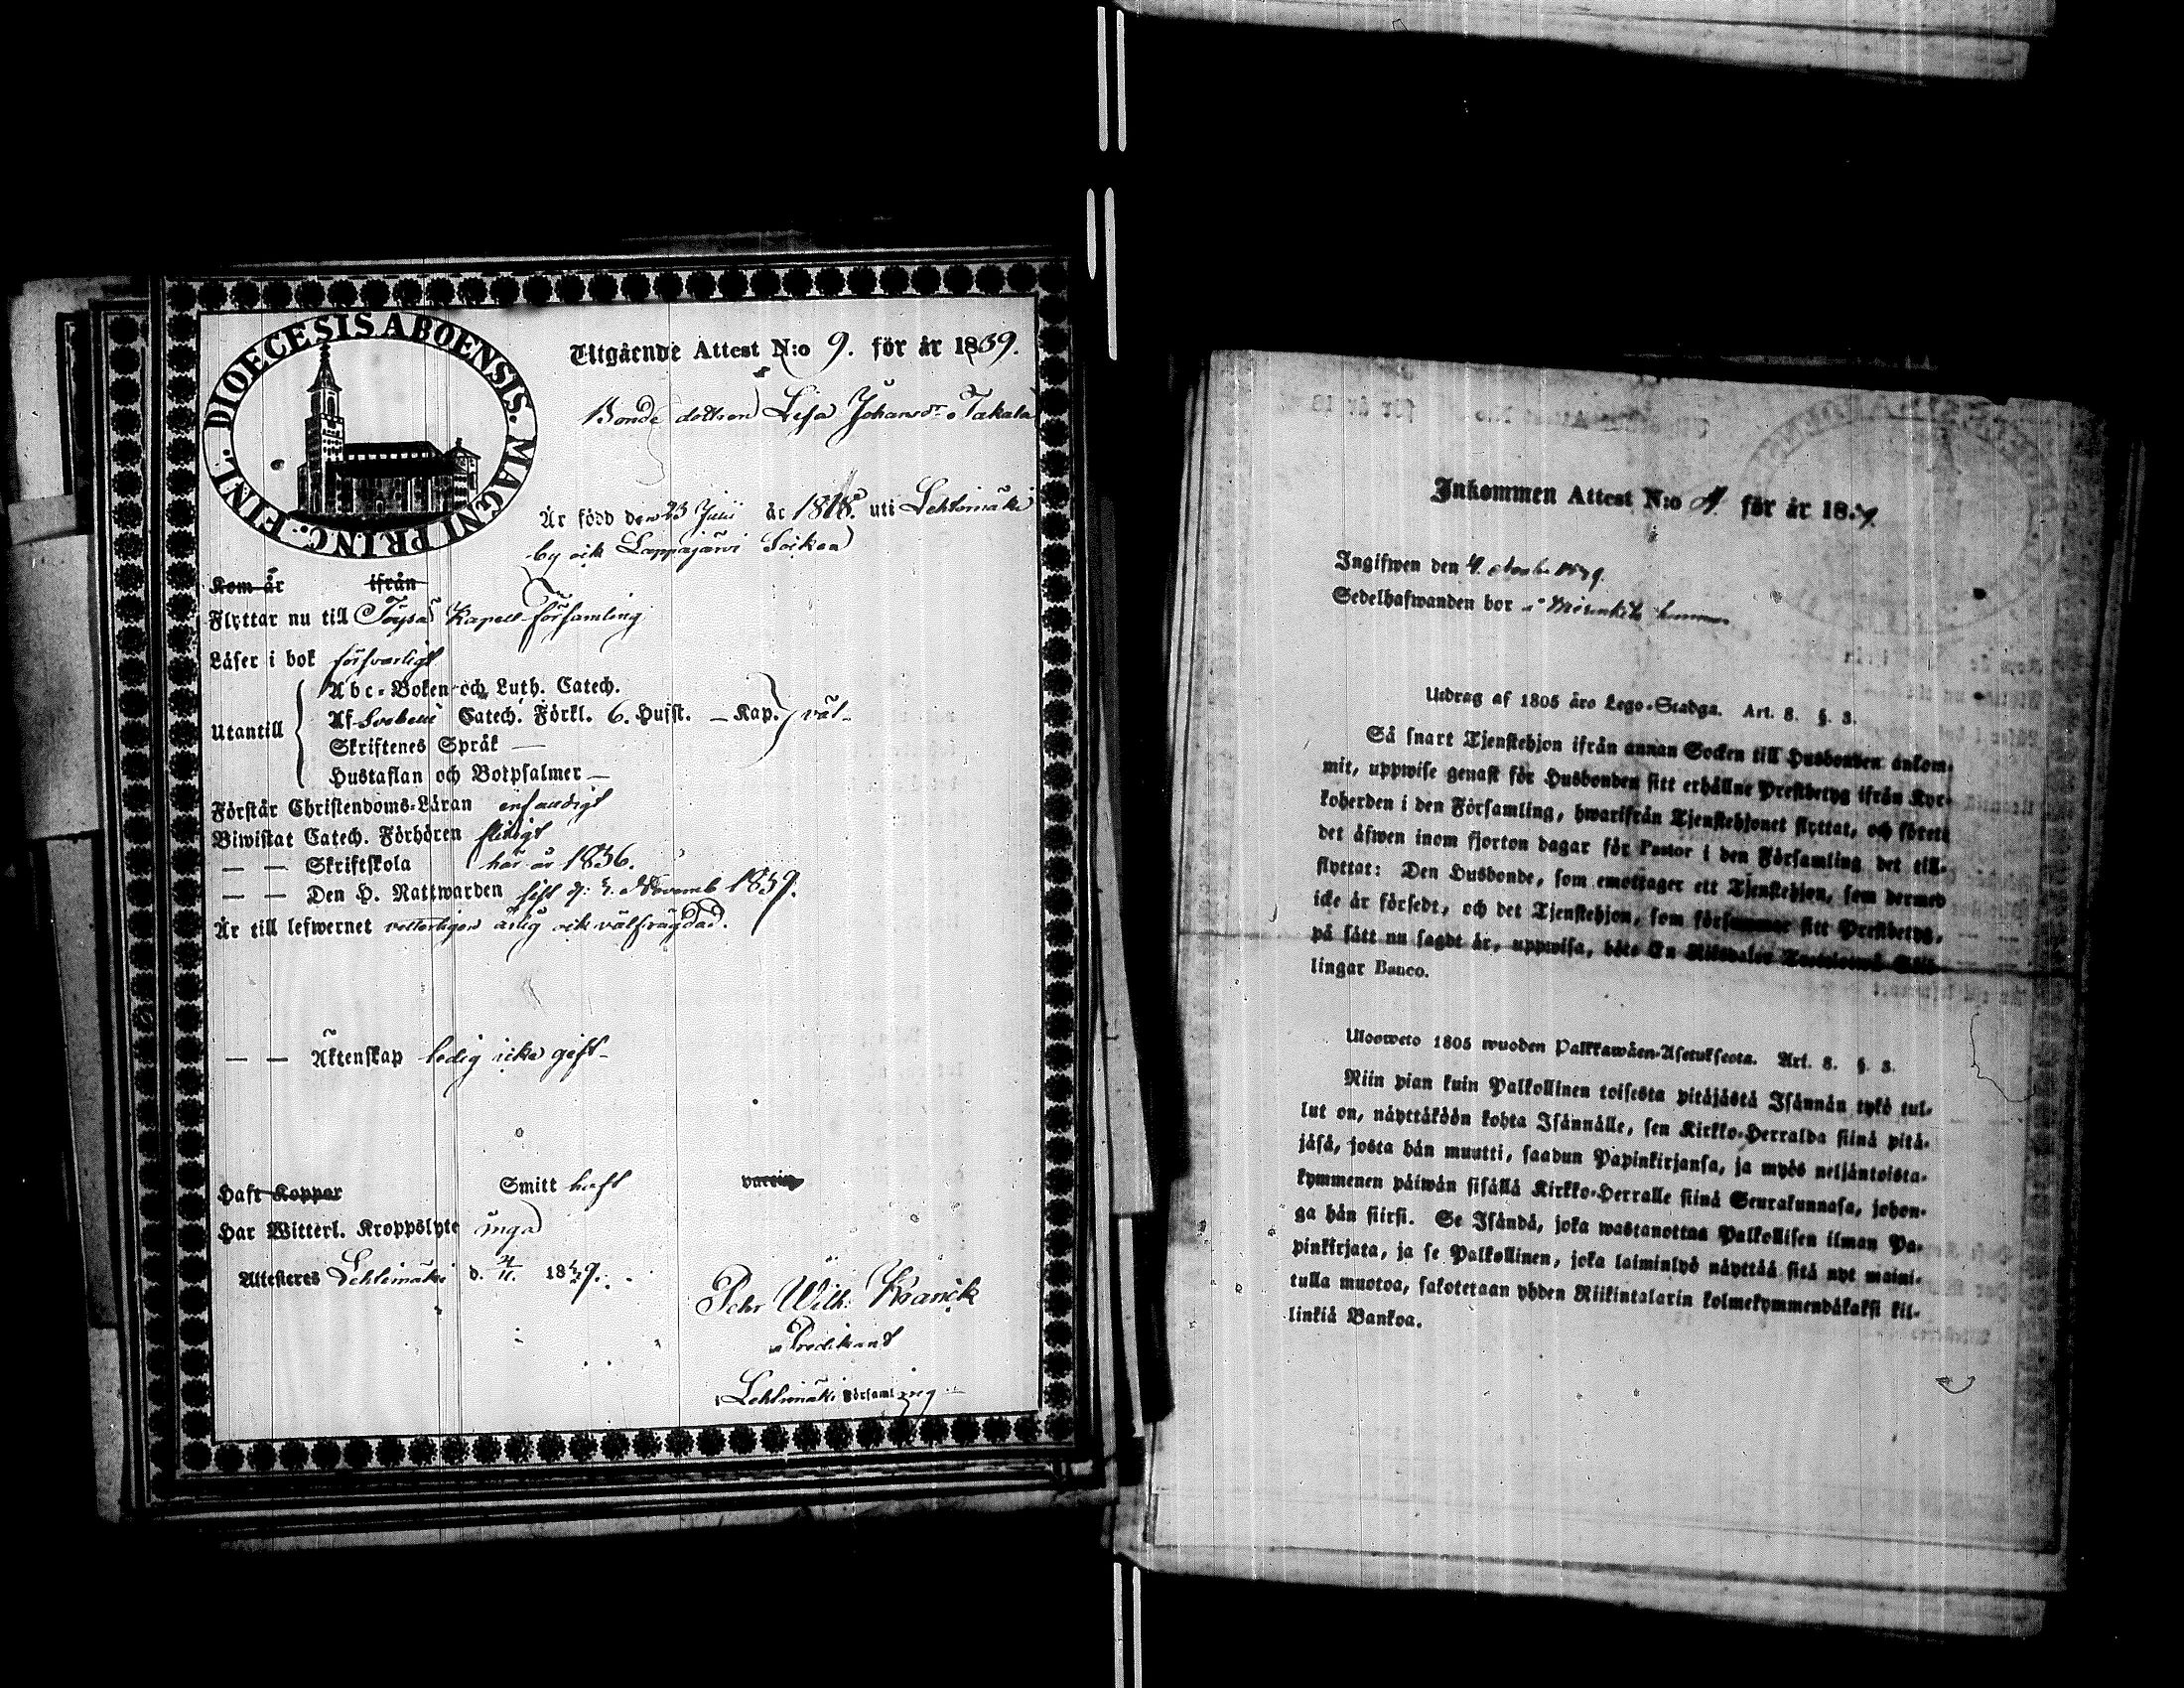 DIOECESIS ABOENSIS. MAGNI PRINC. FINL.
Utgående Attest N:o 9. för år 1839.
Bonde dottren Lisa Johansdr Takala
Är född den 23 Juni år 1818. uti Lehtimäki
by och Lappajärvi Socken
Kom år ifrån
Flyttar nu till Töysä Kapell församling
Läser i bok försvarligt
Utantill
Abc-Boken och Luth. Catech.
Af Svebelii Catech. Förkl. 6. Hufst. — Kap. väl
Skriftenes Språk —
Hustaflan och Botpsalmer —
Förstår Christendoms-Läran enfaldigt
Biwistat Catech. Förhören flitigt
— — Skriftskola här år 1836.
— — Den H. Nattwarden sist d: 3. Novemb 1839.
Är till lefwernet ärlig och välfrägdad.
— — Äktenskap ledig icke gift
Haft Koppor Smitt haft
Har Witterl. Kroppslyte inga
Attesteras Lehtimäki d. 4/11. 1839.
Pehr Wilh. Kranck
Predikant
i Lehtimäki Församling
Inkommen Attest N:o för år 18
Ingifwen den 4.
Sedelhafwanden bor
Utdrag af 1805 års Lego-Stadga. Art. 8. §. 3.
Så snart Tjenstehjon ifrån annan Socken till Husbonden ankom-
mit, uppwise genast för Husbonden sitt erhållne Prestbetyg ifrån Kyr-
koherden i den Församling, hwarifrån Tjenstehjonet flyttat, och förete
det äfwen inom fjorton dagar för Pastor i den Församling det till-
flyttat: Den Husbonde, som emottager ett Tjenstehjon, som dermed
icke är försedt, och det Tjenstehjon, som försummar sitt Prestbetyg,
på sätt nu sagdt är, uppwisa, böte En Riksdaler Trettiotwå Skil-
lingar Banco.
Ulosweto 1805 wuoden Palkkawäen-Asetuksesta. Art. 8. §. 3.
Niin pian kuin Palkollinen toisesta pitäjästä Isännän tykö tul-
lut on, näyttäköön kohta Isännälle, sen Kirkko-Herralda siinä pitä-
jäsä, josta hän muutti, saadun Papinkirjansa, ja myös neljäntoista-
kymmenen päiwän sisällä Kirkko-Herralle siinä Seurakunnasa, johon-
ga hän siirsi. Se Isändä, joka wastanottaa Palkollisen ilman Pa-
pinkirjata, ja se Palkollinen, joka laiminlyö näyttää sitä nyt maini-
tulla muotoa, sakotetaan yhden Riikintalarin kolmekymmendäkaksi kil-
linkiä Bankoa.